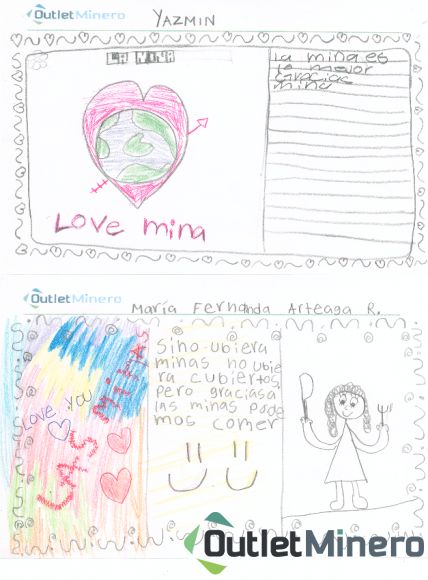 OutletMinero
YAZMIN
LA MINA
Love mina
La mina es
la mejor
gracias
mina
OutletMinero
María Fernanda Arteaga R.
Love you
mina
Sino ubiera
minas no ubie
ra cubiertos
pero graciasa
las minas pode
mos comer
OutletMinero